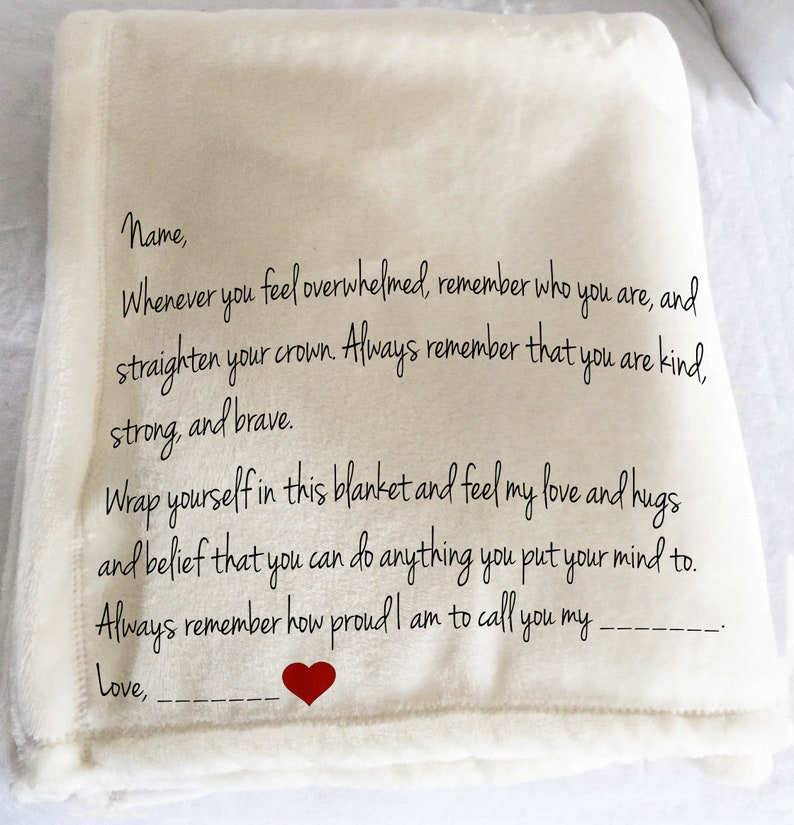 Name,
Whenever you feel overwhelmed, remember who you are, and
straighten your crown. Always remember that you are kind,
strong, and brave.
Wrap yourself in this blanket and feel my love and hugs
and belief that you can do anything you put your mind to.
Always remember how proud I am to call you my _______.
Love, _______